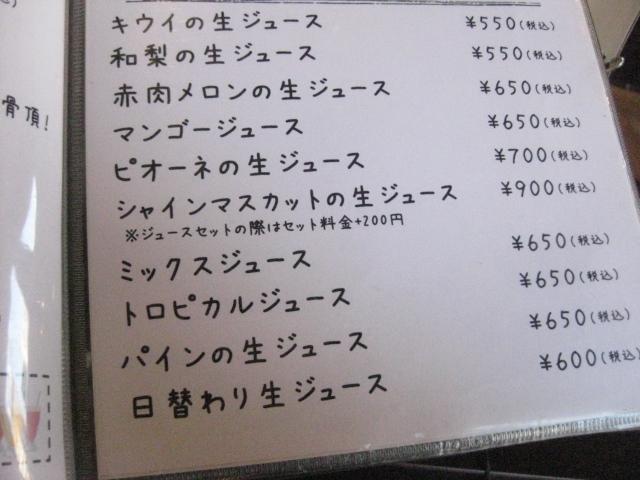 キウイの生ジュース ¥550(税込)
和梨の生ジュース ¥550(税込)
赤肉メロンの生ジュース ¥650(税込)
マンゴージュース ¥650(税込)
ピオーネの生ジュース ¥700(税込)
シャインマスカットの生ジュース ¥900(税込)
※ジュースセットの際はセット料金+200円
ミックスジュース ¥650(税込)
トロピカルジュース ¥650(税込)
パインの生ジュース ¥650(税込)
日替わり生ジュース ¥600(税込)
骨頂!